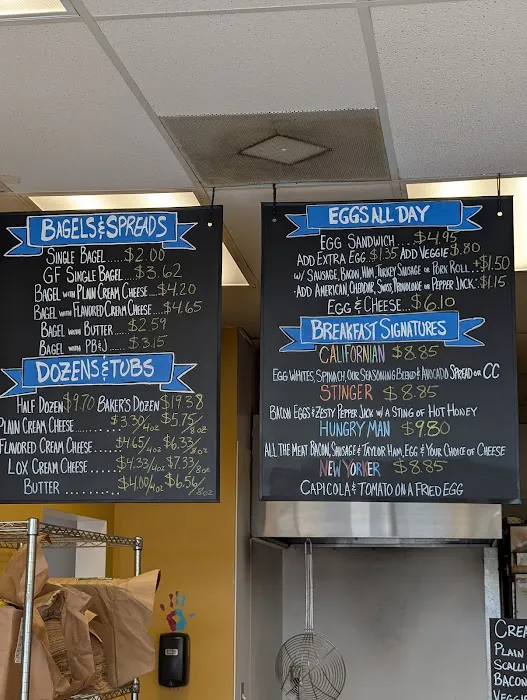 BAGELS & SPREADS
SINGLE BAGEL.....$2.00
GF SINGLE BAGEL....$3.62
BAGEL WITH PLAIN CREAM CHEESE...$4.20
BAGEL WITH FLAVORED CREAM CHEESE...$4.65
BAGEL WITH BUTTER....$2.59
BAGEL WITH PB&J.....$3.15
DOZENS & TUBS
HALF DOZEN $9.70 BAKER'S DOZEN $19.38
PLAIN CREAM CHEESE....$3.30/4oz $5.75/8oz
FLAVORED CREAM CHEESE....$4.65/4oz $6.33/8oz
LOX CREAM CHEESE....$4.33/4oz $7.33/8oz
BUTTER.........$4.00/4oz $6.56/8oz
EGGS ALL DAY
EGG SANDWICH....$4.95
ADD EXTRA EGG $1.35 ADD VEGGIE $.80
W/ SAUSAGE, BACON, HAM, TURKEY SAUSAGE OR PORK ROLL..+$1.50
-ADD AMERICAN, CHEDDAR, SWISS, PROVOLONE OR PEPPER JACK..$1.15
EGG & CHEESE....$6.10
BREAKFAST SIGNATURES
CALIFORNIAN $8.85
EGG WHITES, SPINACH, OUR SEASONING BLEND & AVOCADO SPREAD OR CC
STINGER $8.85
BACON EGGS & ZESTY PEPPER JACK W/ A STING OF HOT HONEY
HUNGRY MAN $9.80
ALL THE MEAT BACON, SAUSAGE & TAYLOR HAM, EGG & YOUR CHOICE OF CHEESE
NEW YORKER $8.85
CAPICOLA & TOMATO ON A FRIED EGG
CREA
PLAIN
SCALLI
BACON
VEGGIE